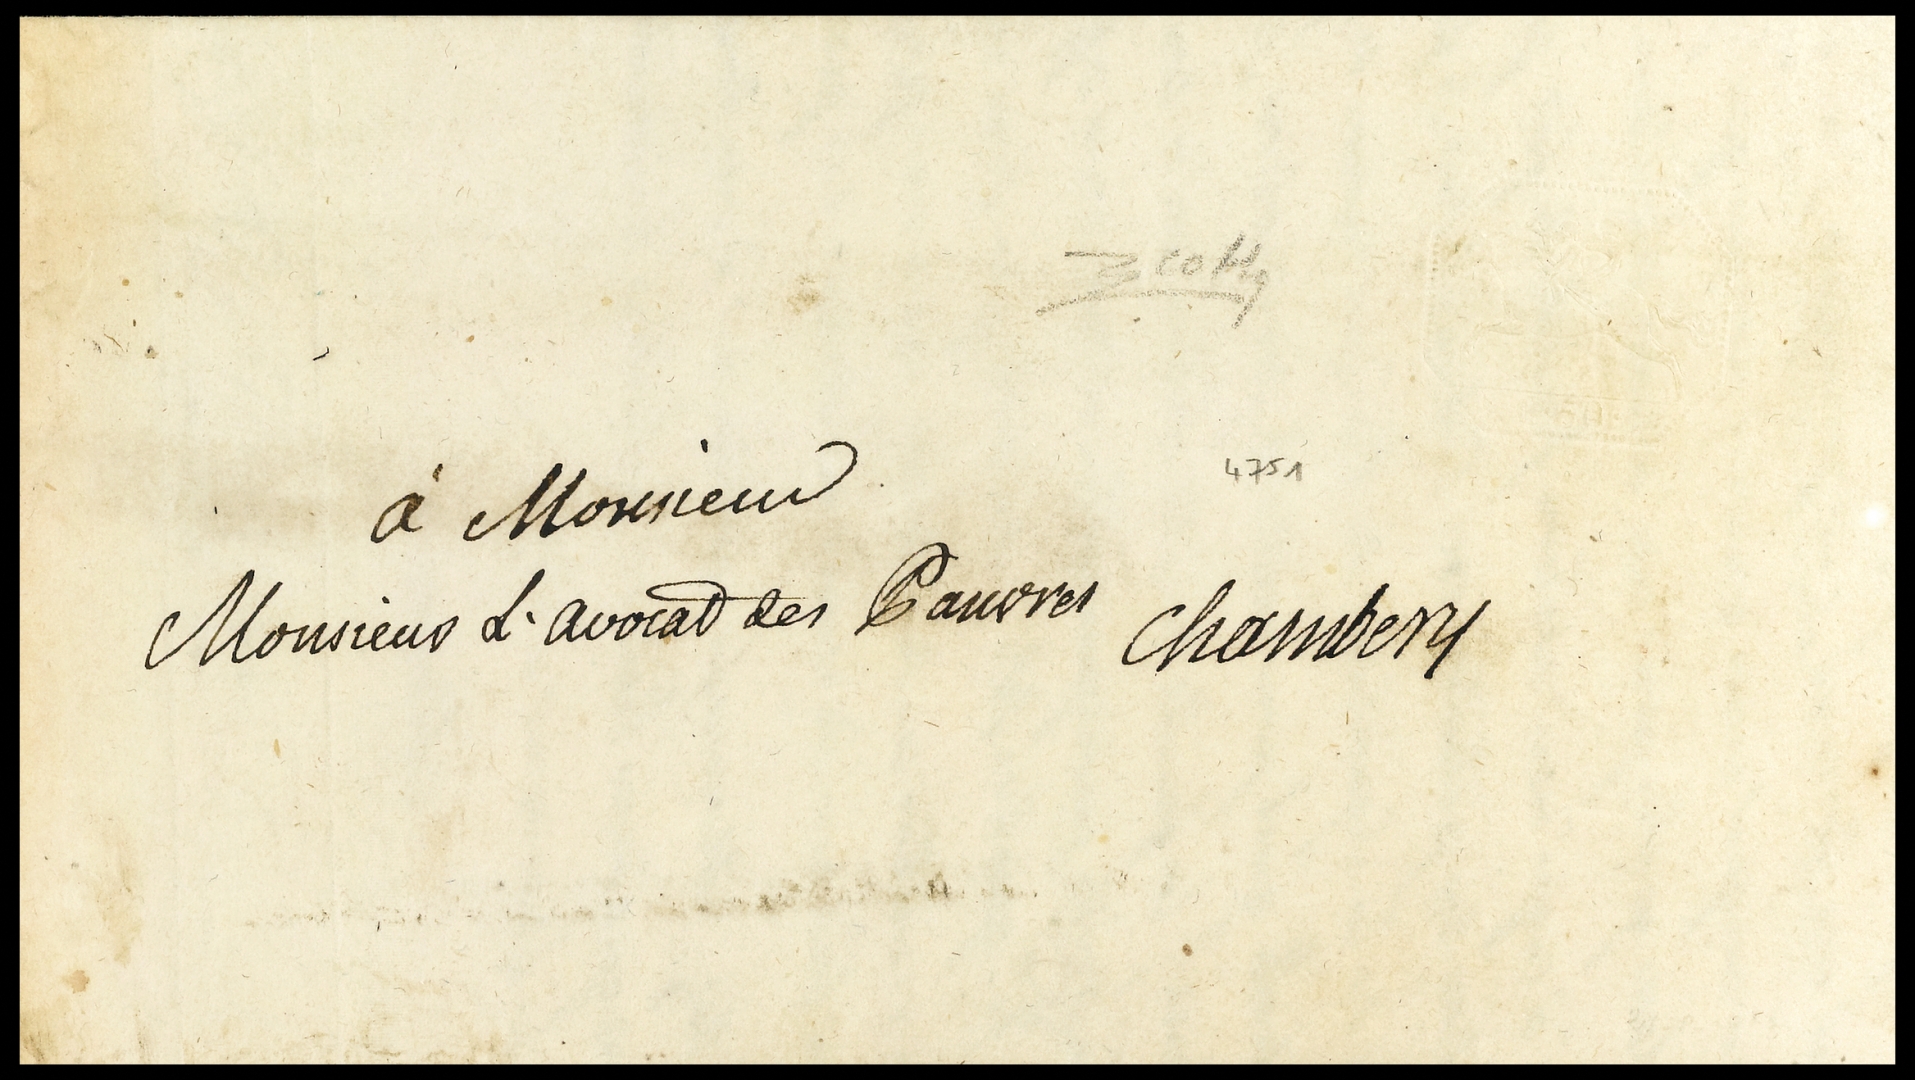 4751
à Monsieur
Monsieur L'avocat des Pauvres Chambery